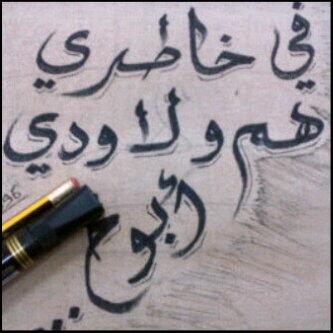 في خاطري
هم ولا ودي
أبوح
..